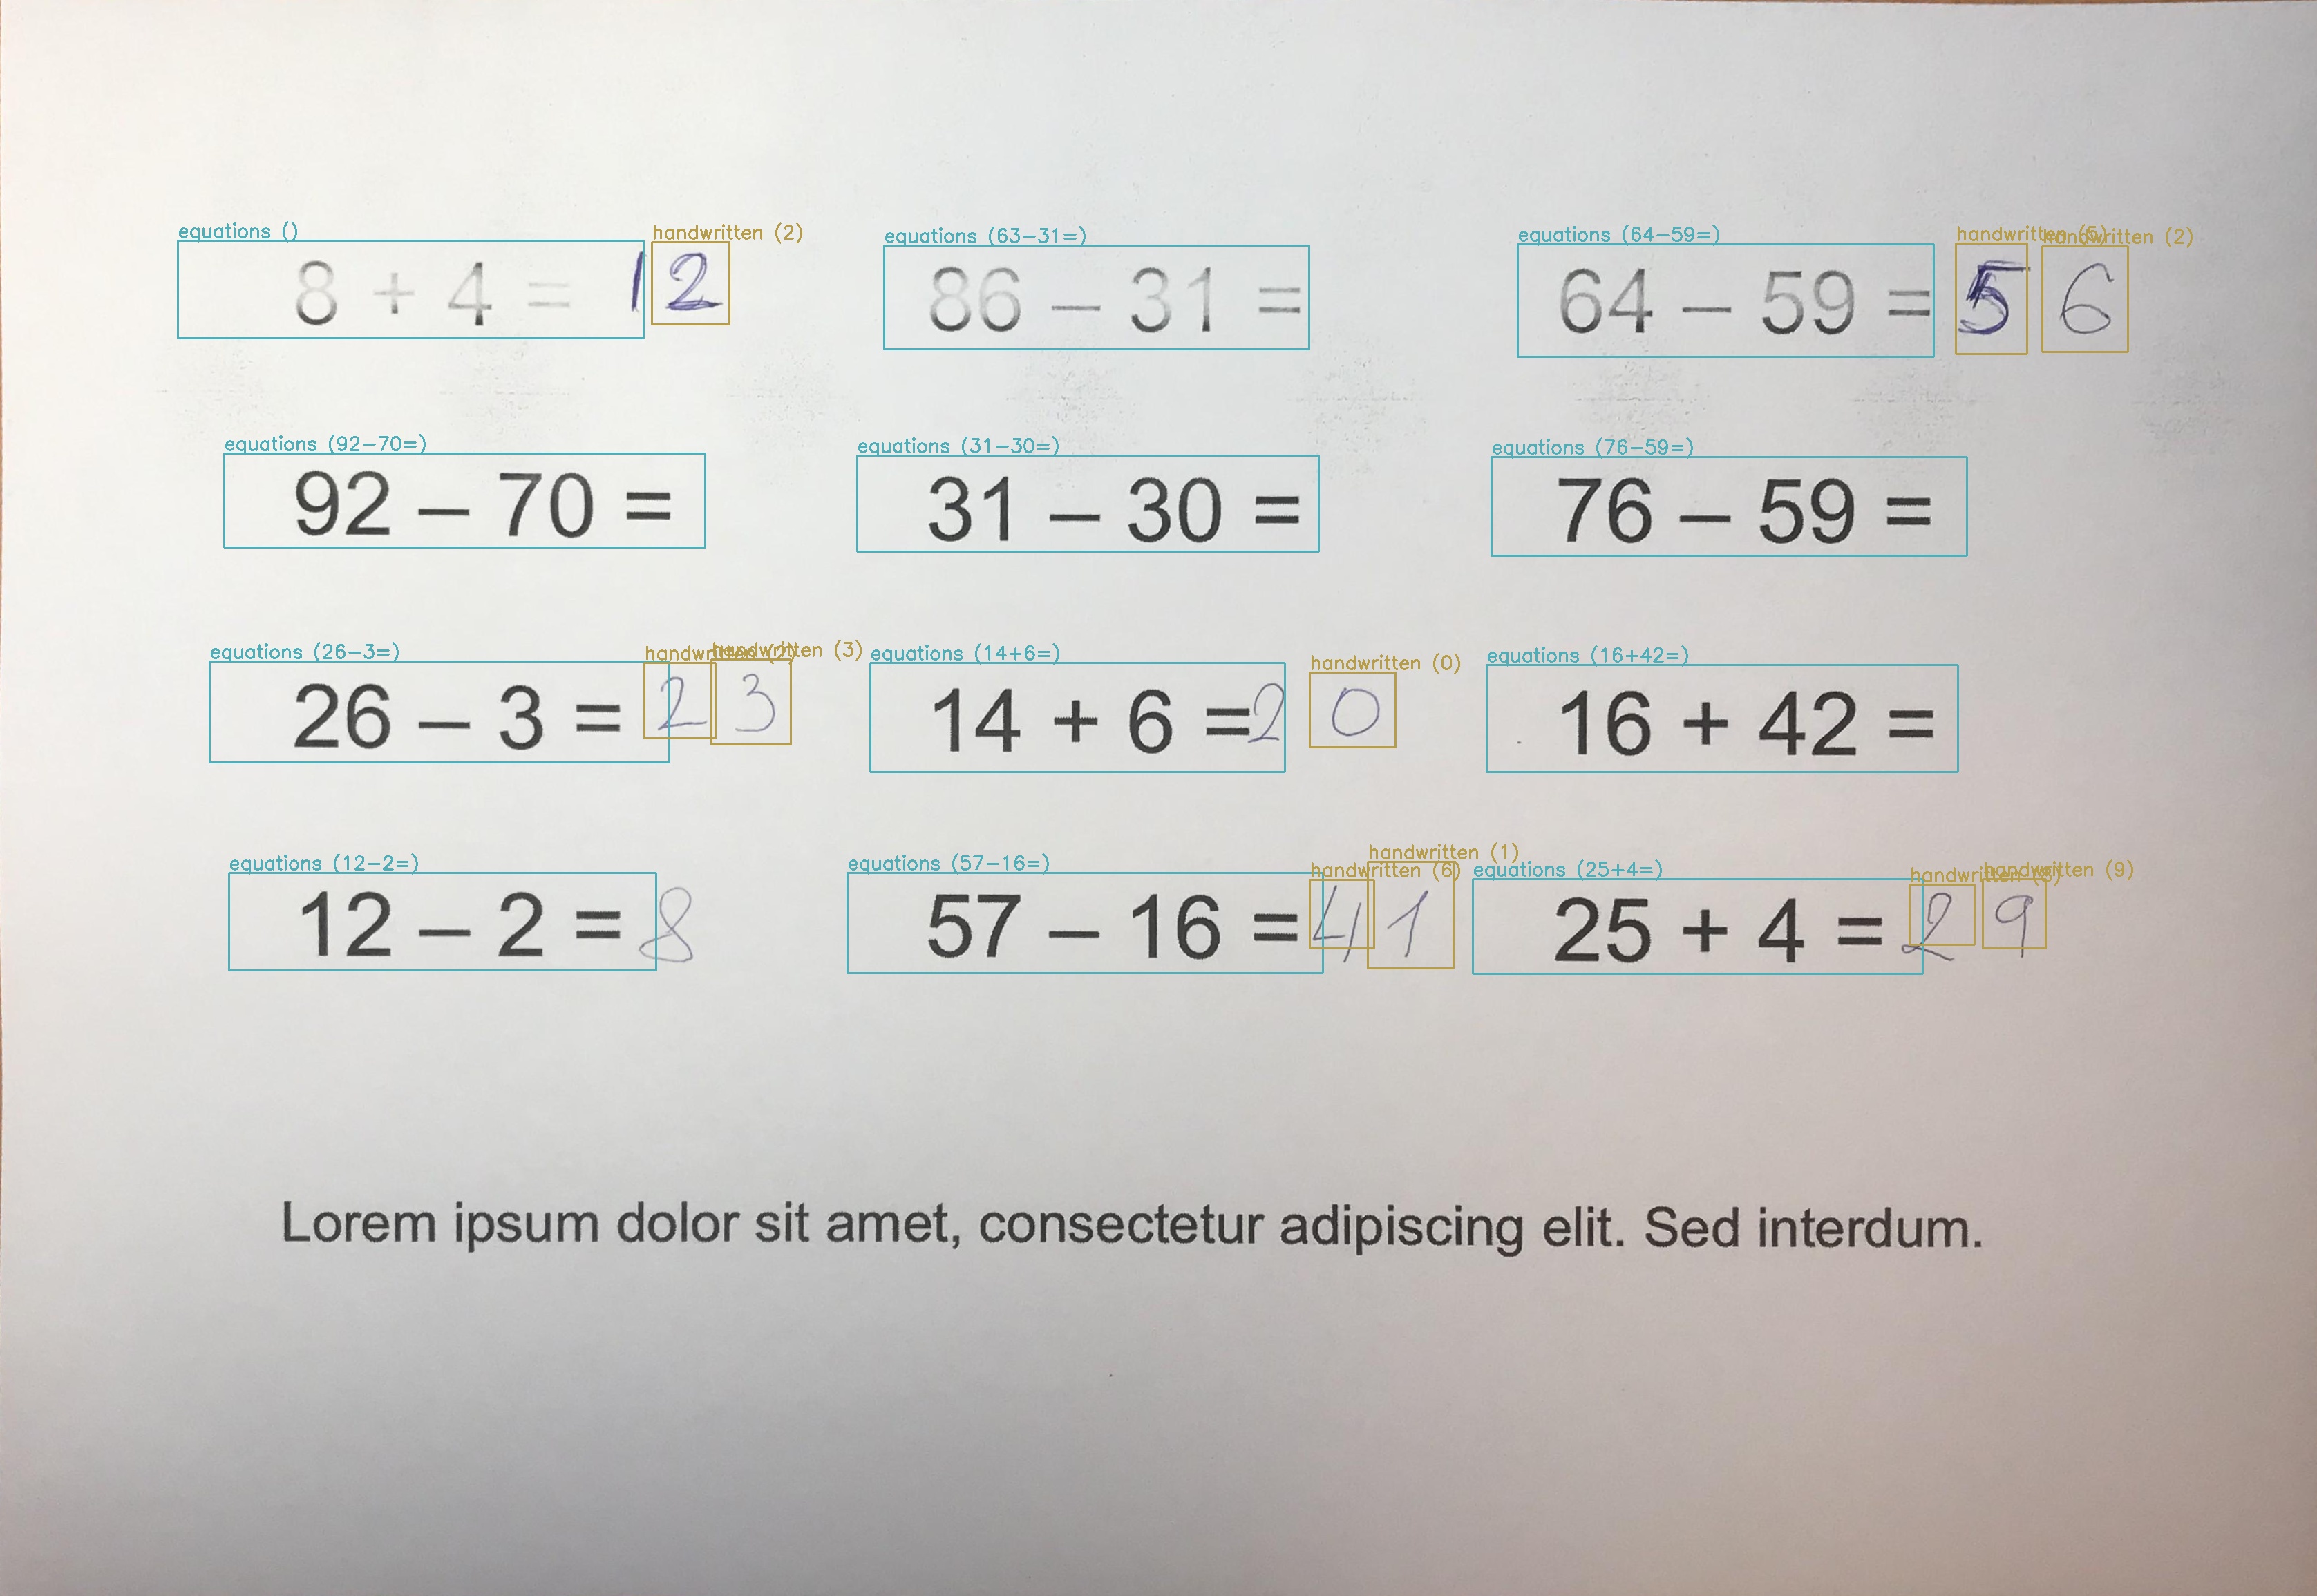 equations () handwritten (2) equations (63-31=) equations (64-59=) handwritten (5) handwritten (2)
8 + 4 = 12 86 – 31 = 64 – 59 = 56
equations (92-70=) equations (31-30=) equations (76-59=)
92 – 70 = 31 – 30 = 76 – 59 =
equations (26-3=) handwritten (2) handwritten (3) equations (14+6=) handwritten (0) equations (16+42=)
26 – 3 = 23 14 + 6 = 20 16 + 42 =
equations (12-2=) equations (57-16=) handwritten (6) handwritten (1) equations (25+4=) handwritten handwritten (9)
12 – 2 = 8 57 – 16 = 41 25 + 4 = 29
Lorem ipsum dolor sit amet, consectetur adipiscing elit. Sed interdum.